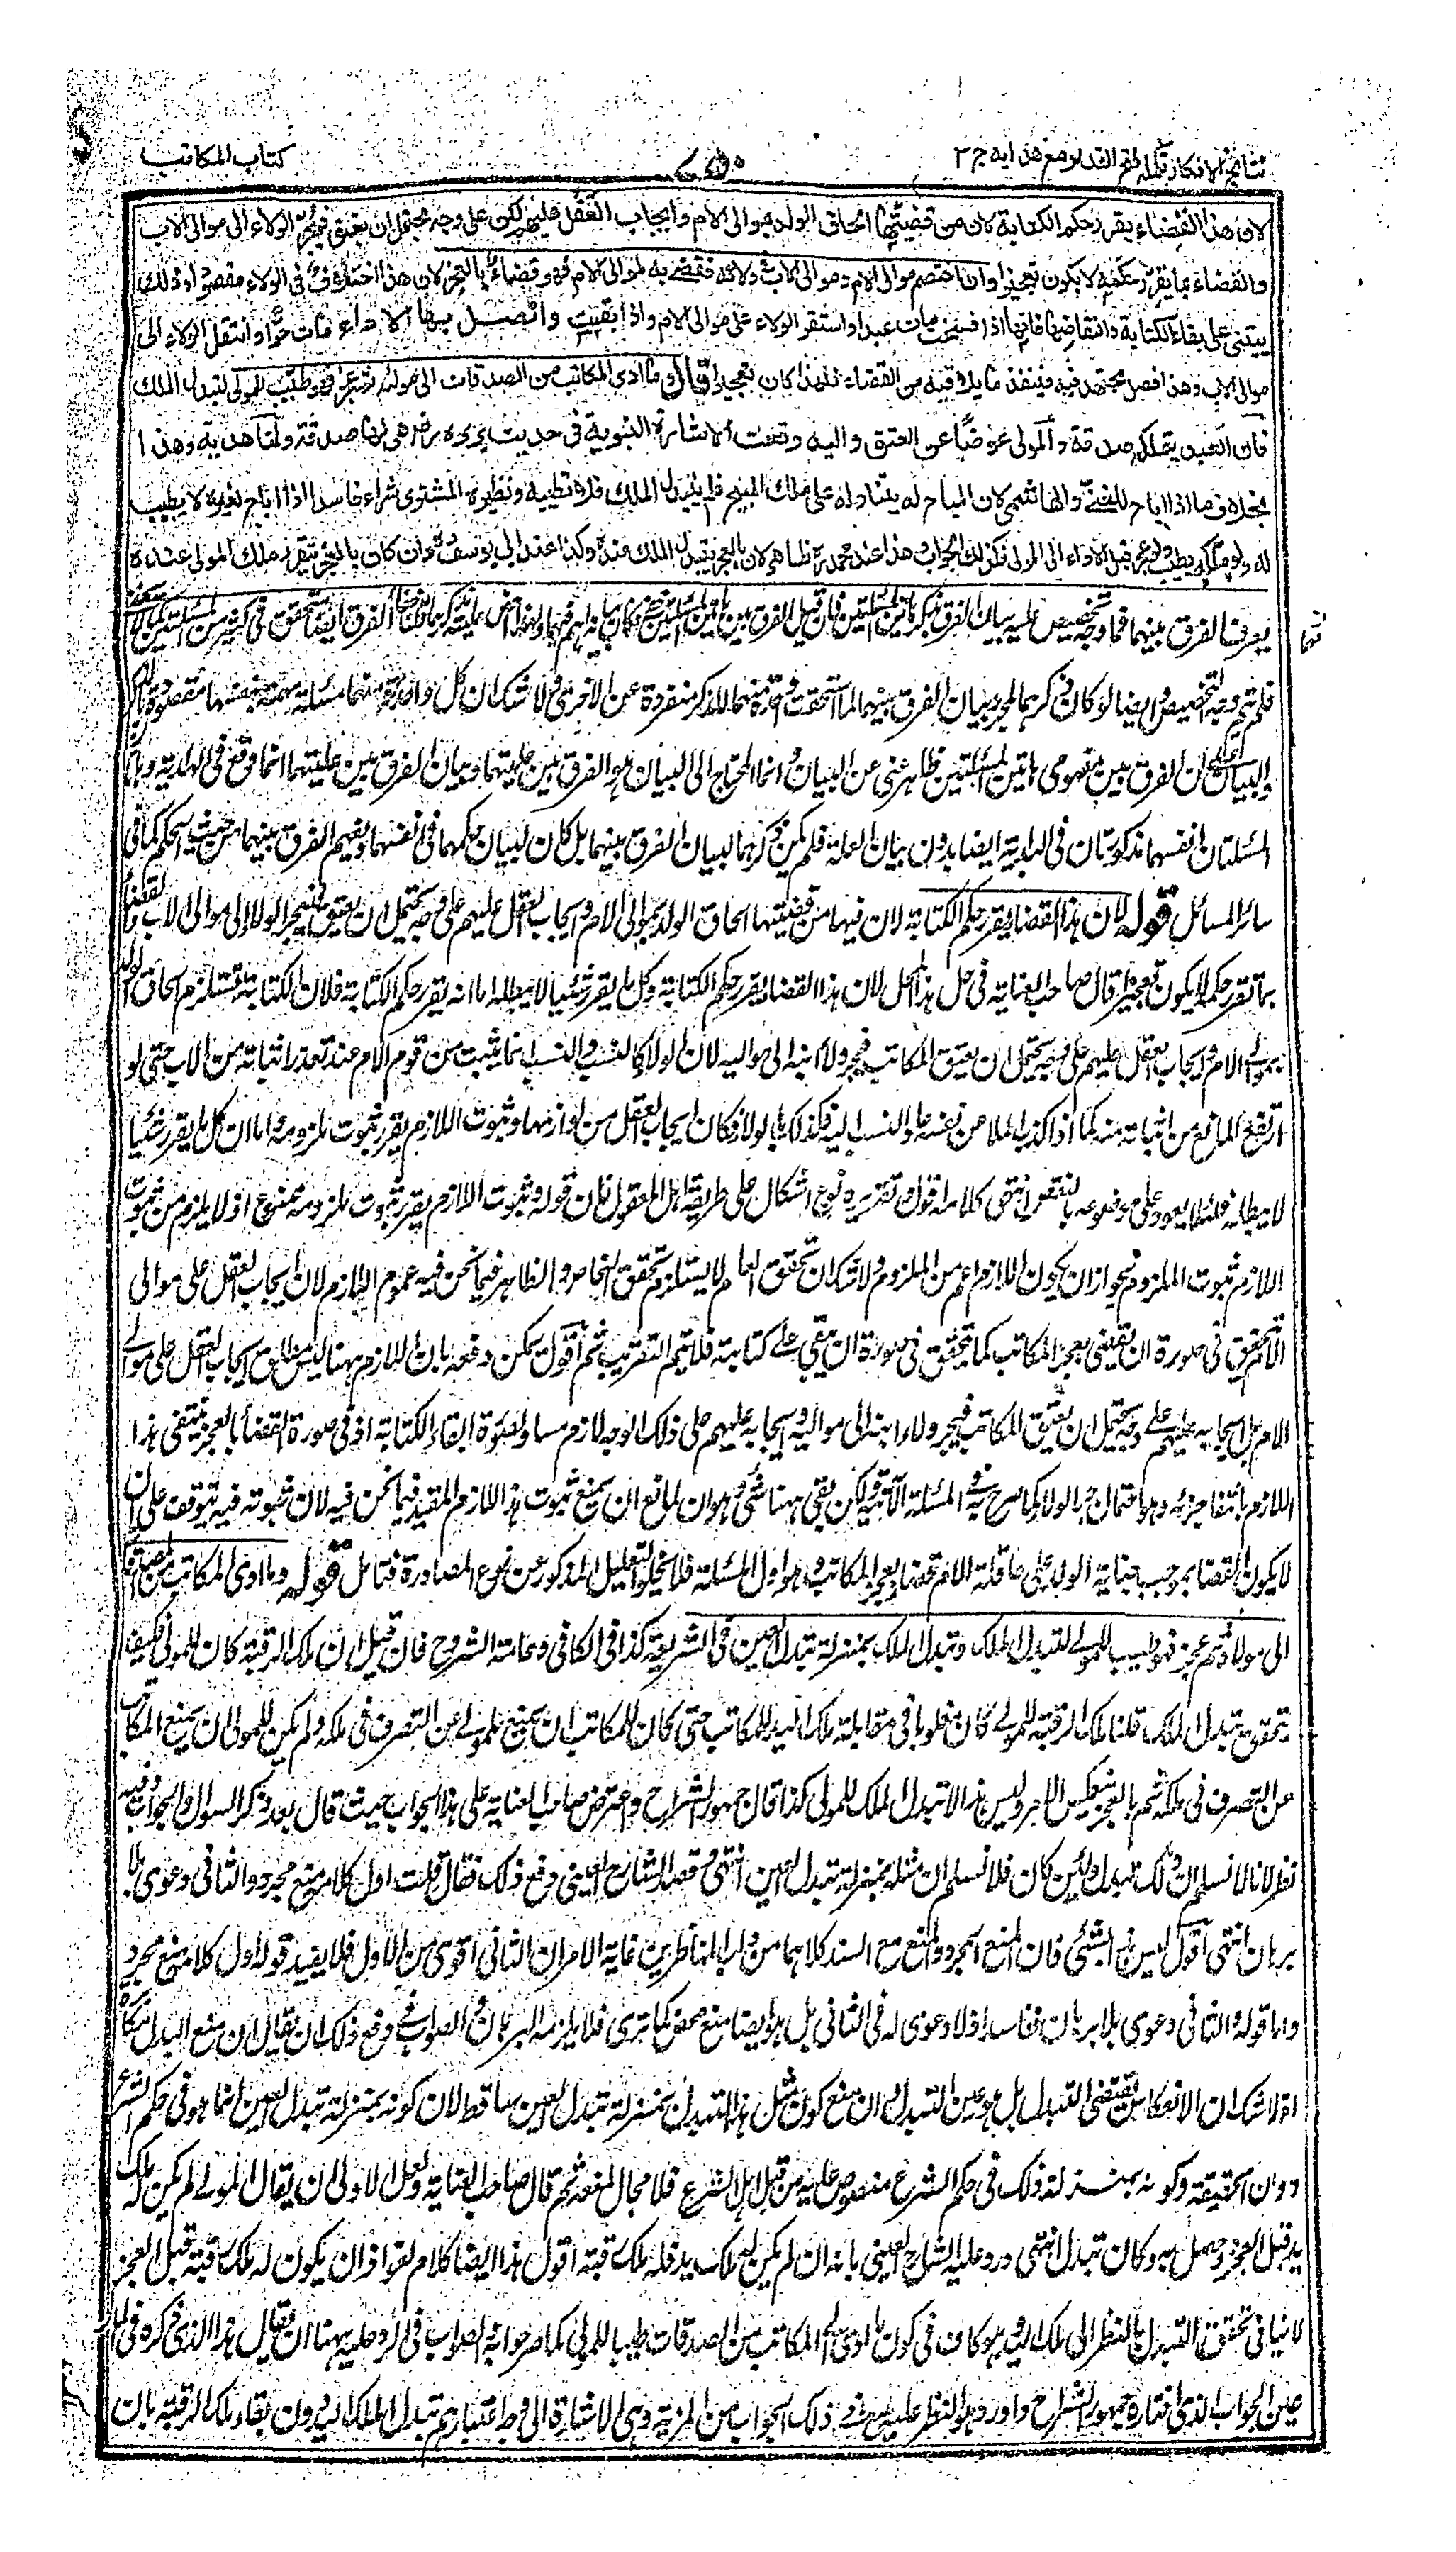 نتائج الافكار تكمله فتح القدير مع هدايه ج ٣
كتاب المكاتب
لان هذا القضاء يقرر حكم الكتابة لان من قضيتها الحاق الولد بموالى الام وايجاب العقل عليهم لكن على وجه يحتمل ان يعتق فيجر الولاء الى موالى الاب
والقضاء بما يقرر حكمه لا يكون تعجيزا وان اختصم موالى الام وموالى الاب فى ولائه فقضى به لموالى الام فهو قضاء بالعجز لان هذا اختلاف فى الولاء مقصودا وذلك
يبتنى على بقاء الكتابة وانتقاضها فانها اذا فسخت مات عبدا واستقر الولاء على موالى الام واذا بقيت واتصل بها الاداء مات حرا وانتقل الولاء الى
موالى الاب وهذا فصل مجتهد فيه فينفذ ما يلاقيه من القضاء فلهذا كان تعجيزا قال وما ادى المكاتب من الصدقات الى مولاه ثم عجز فهو طيب للمولى لتبدل الملك
فان العبد يتملكه صدقة والمولى عوضا عن العتق واليه وقعت الاشارة النبوية فى حديث بريرة رض هى لها صدقة ولنا هدية وهذا
بخلاف ما اذا اباح للغنى والهاشمى لان المباح له يتناوله على ملك المبيح فلم يتبدل الملك فلا تطيبه ونظيره المشترى شراء فاسدا اذا اباح لغيره لا يطيب
له ولو ملكه يطيب ولو عجز قبل الاداء الى المولى فكذلك الجواب وهذا عند محمد رح ظاهر لان بالعجز يتبدل الملك عنده وكذا عند ابى يوسف رح وان كان بالعجز يتقرر ملك المولى عنده
يعرف الفرق بينهما فما وجه تخصيص
فلم يتم وجه التخصيص وايضا لو كان ذكرهما لمجرد بيان الفرق بينهما لما استحقت واحدة منهما للذكر منفردة عن الاخرى ولا شك ان كل واحدة منهما مسئلة مهمة بنفسها مقصودة
والبيان على ان الفرق بين مفهومى هاتين المسئلتين ظاهر غنى عن البيان وانما المحتاج الى البيان هو الفرق بين علتيهما وبيان الفرق بين علتيهما انما وقع فى الهداية وهاتان
المسئلتان انفسهما مذكورتان فى البداية ايضا بدون بيان العلة فلم يكن ذكرهما لبيان الفرق بينهما بل كان لبيان حكمهما فى انفسهما ويفهم الفرق بينهما من حيث الحكم كما فى
سائر المسائل قوله لان هذا القضاء يقرر حكم الكتابة لان فيها من قضيتها الحاق الولد بموالى الام وايجاب العقل عليهم على وجه يحتمل ان يعتق فينجر الولاء الى موالى الاب والقضاء
بما تقرر حكمه لا يكون تعجيزا قال صاحب العناية فى حل هذا المحل لان هذا القضاء يقرر حكم الكتابة وكل ما يقرر شيئا لا يبطله اما انه يقرر حكم الكتابة فلان الكتابة تستلزم الحاق الولد
بموالى الام وايجاب العقل عليهم على وجه يحتمل ان يعتق المكاتب فيجر ولاء ابنه الى مواليه لان الولاء كالنسب والنسب انما يثبت من قوم الام عند تعذر اثباته من الاب حتى لو
ارتفع المانع من اثباته منه كما اذا اكذب الملاعن نفسه عاد النسب اليه فكذلك الولاء فكان ايجاب العقل من لوازمها وثبوت اللازم يقرر ثبوت ملزومه واما ان كل ما يقرر شيئا
لا يبطله فلئلا يعود على موضوعه بالنقض انتهى كلامه اقول فى تقريره نوع اشكال على طريقة اهل المعقول فان قوله وثبوت اللازم يقرر ثبوت ملزومه ممنوع اذ لا يلزم من ثبوت
اللازم ثبوت الملزوم لجواز ان يكون اللازم اعم من الملزوم ولا شك ان تحقق العام لا يستلزم تحقق الخاص والظاهر فيما نحن فيه عموم اللازم لان ايجاب العقل على موالى
الام يتحقق فى صورة ان يقضى بعجز المكاتب كما يتحقق فى صورة ان يبقى على كتابته فلا يتم التقريب ثم اقول يمكن دفعه بان اللازم ههنا ليس مطلق ايجاب العقل على موالى
الام بل ايجابه عليهم على وجه يحتمل ان يعتق المكاتب فيجر ولاء ابنه الى مواليه وايجابه عليهم على ذلك الوجه لازم مساو لصورة ابقاء الكتابة اذ فى صورة القضاء بالعجز ينتفى هذا
اللازم بانتفاء جزئه وهو احتمال جر الولاء كما صرح به فى المسئلة الآتية ولكن بقى ههنا شئ وهو ان لمانع ان يمنع ثبوت هذا اللازم المقيد فيما نحن فيه لان ثبوته فيه يتوقف على ان
لا يكون القضاء بموجب جناية الولد على عاقلة الام قضاء بعجز المكاتب وهو اول المسئلة فلا يخلو التعليل المذكور عن نوع المصادرة فتامل قوله وما ادى المكاتب من الصدقات
الى مولاه ثم عجز فهو طيب للمولى لتبدل الملك وتبدل الملك بمنزلة تبدل العين فى الشريعة كذا فى الكافى وعامة الشروح فان قيل ان ملك الرقبة كان للمولى فكيف
يتحقق تبدل الملك قلنا ملك الرقبة للمولى كان مغلوبا فى مقابلة ملك اليد للمكاتب حتى كان للمكاتب ان يمنع المولى عن التصرف فى ملكه ولم يكن للمولى ان يمنع المكاتب
عن التصرف فى ملكه ثم بالعجز ينعكس الامر وليس هذا الا تبدل الملك للمولى كذا قال جمهور الشراح واعترض صاحب العناية على هذا الجواب حيث قال بعد ذكر السوال والجواب وفيه
نظر لانا لا نسلم ان ذلك تبدل ولئن كان فلا نسلم ان مثله بمنزلة تبدل العين انتهى وقصد الشارح العينى دفع ذلك فقال قلت اول كلامه منع مجرد والثانى دعوى بلا
برهان انتهى اقول ليس هذا بشئ فان المنع المجرد والمنع مع السند كلاهما من داب المناظرين غاية الامر ان الثانى اقوى من الاول فلا يفيد قوله اول كلامه منع مجرد
واما قوله والثانى دعوى بلا برهان ففاسد اذ لا دعوى له فى الثانى بل هو ايضا منع محض كما ترى فلا يلزمه البرهان والصواب فى دفع ذلك ان يقال ان منع التبدل مكابرة
اذ لا شك ان الانعكاس يقتضى التبدل بل هو عين التبدل وان منع كون مثل هذا التبدل بمنزلة تبدل العين ساقط لان كونه بمنزلة تبدل العين انما هو فى حكم الشرع
دون الحقيقة وكونه بمنزلة ذلك فى حكم الشرع منصوص عليه من قبل اهل الشرع فلا مجال لمنعه ثم قال صاحب العناية ولعل الاولى ان يقال المولى لم يكن له ملك
يد قبل العجز وحصل به وكان تبدلا انتهى ورد عليه الشارح العينى بانه ان لم يكن له ملك يد فله ملك رقبة اقول هذا ايضا كلام لغو اذ ان يكون له ملك رقبة قبل العجز
لا ينافى تحقق التبدل بالنظر الى ملك اليد وهو كاف فى كون ما ادى اليه المكاتب من الصدقات طيبا للمولى كما صرحوا به والصواب فى الرد عليه ههنا ان يقال هذا الذى ذكره
عين الجواب الذى اختاره جمهور الشراح واورد هو النظر عليه